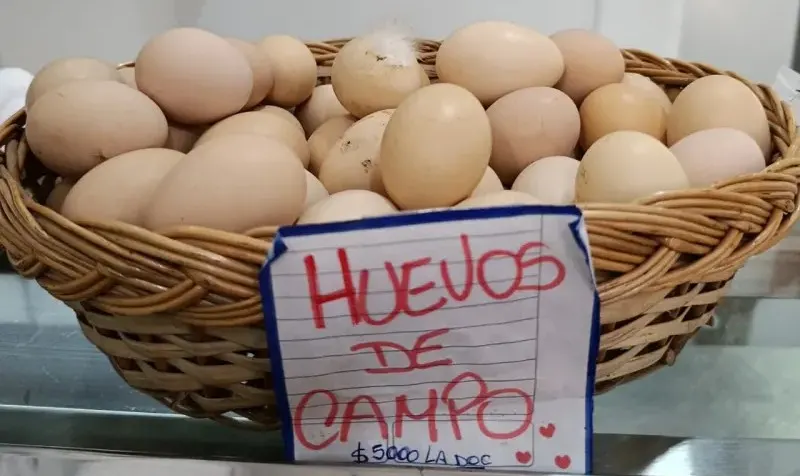 HUEVOS
DE
CAMPO
$5000 LA DOC